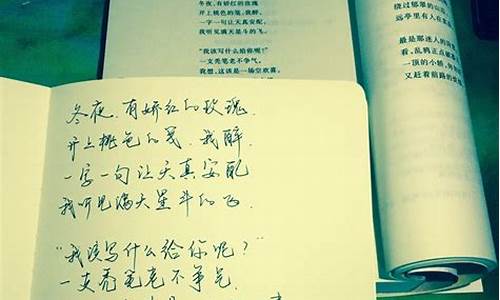 冬夜,有娇红的玫瑰
开上桃色的笺,我醉,
一字一句让天真安配
我听见满天星斗的飞。
“我该写什么给你呢?”
一支秃笔老不争气。
冬夜,有娇红的玫瑰
开上桃色的笺,我醉,
一字一句让天真安配
我听见满天星斗的飞
“我该写什么给你呢?”
一支秃笔老不争气.
绕过郁翠的山
远亭里有人在
最是那迷人的
看,乱鸦正点
一顶的小轿,
又赶着前路的